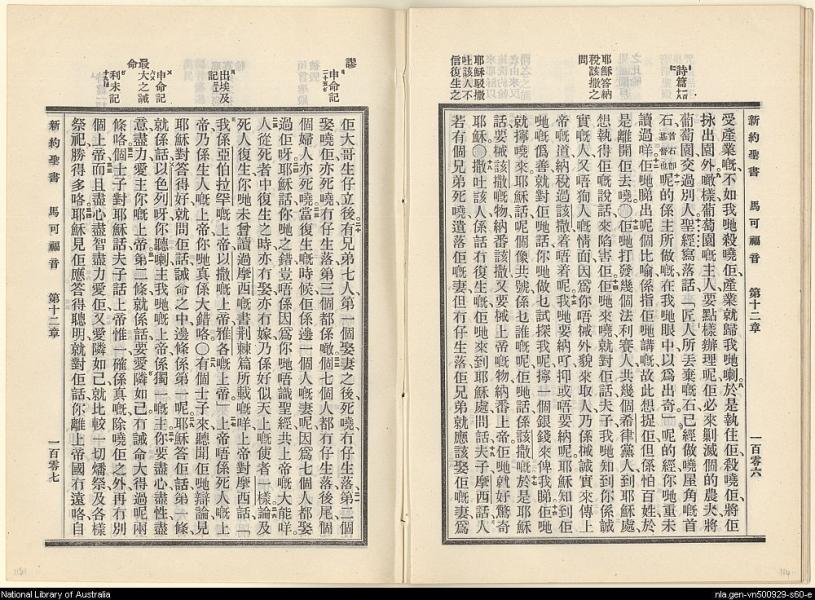 新約聖書 馬可福音 第十二章 一百零六
受產業嘅、不如我哋殺曉佢產業就歸我哋喇、於是執住佢殺曉佢將佢
㧒出園外、噉樣葡萄園嘅主人要點樣辦理呢、佢必來剿滅個的農夫、將
葡萄園交過別人、聖經寫落話、「匠人所丟棄嘅石已經做曉屋角嘅首
石、呢的係主所做嘅、在我哋眼中以爲出奇」呢的經你哋重未
讀過咩、佢哋睇出呢個比喻係指佢哋講嘅、故此想捉佢、但係怕百姓、於
是離開佢去曉〇佢哋打發幾個法利賽人、共幾個希律黨人到耶穌處、
想執得佢嘅說話來陷害佢、佢哋來曉就對佢話、夫子我哋知到你係誠
實嘅人、又唔狥人嘅情面、因爲你唔械外貌來取人、乃係械誠實來傳上
帝嘅道、納稅過該撒着唔着呢、我哋要納可抑或唔要納呢、耶穌知到佢
哋嘅僞善、就對佢哋話、你哋做乜試探我呢、擰一個銀錢來俾我睇、佢哋
就擰嚟來、耶穌話呢個像共號係乜誰嘅呢、佢哋話係該撒嘅、於是耶穌
話要械該撒嘅物納番該撒、又要械上帝嘅物納番上帝、佢哋就好驚奇
耶穌〇撒吐該人係話冇復生嘅、佢哋來到耶穌處問話、夫子摩西話人
若有個兄弟死曉、遺落佢嘅妻、但冇仔生落、佢兄弟就應該娶佢嘅妻、爲
詩篇
耶穌答納
稅該撒之
問
耶穌駁撒
吐該人不
信復生之
謬
申命記
出埃及
記
申命記
最大之誡
命
利未記
佢大哥生仔立後、有兄弟七人、第一個娶妻之後、死曉冇仔生落、第二個
娶曉佢亦死曉、冇仔生落、第三個都係噉、個七個人都冇仔生落、後尾個
個婦人亦死曉、當復生嘅時候、佢係邊一個人嘅妻呢、因爲七個人都娶
過佢呀、耶穌話你哋之錯、豈唔係因爲你哋唔識聖經共上帝嘅大能咩、
人從死者中復生之時、亦冇娶亦冇嫁、乃係好似天上嘅使者一樣、論及
死人復生、你哋未曾讀過摩西嘅書荊棘篇所載嘅咩、上帝對摩西話、「
我係亞伯拉罕嘅上帝、以撒嘅上帝、雅各嘅上帝、」上帝唔係死人嘅上
帝、乃係生人嘅上帝、你哋眞係大錯咯〇有個士子來聽聞佢哋辯論、見
耶穌對答得好、就問佢話、誡命之中邊條係第一呢、耶穌答佢話、第一條
就係話、以色列呀、你聽喇、主我哋嘅上帝係獨一嘅主、你要盡心盡性盡
意盡力愛主你嘅上帝、第二條就係話、要愛隣如己、冇誡命大得過呢兩
條咯、個士子對耶穌話、夫子話上帝惟一確係眞嘅、除曉佢之外再冇別
個上帝、而且盡心盡智盡力愛佢、又愛隣如己、就比較一切燔祭及各樣
祭祀勝得多咯、耶穌見佢應答得聰明、就對佢話、你離上帝國冇遠咯、自
新約聖書 馬可福音 第十二章 一百零七
National Library of Australia
nla.gen-vn500929-s60-e